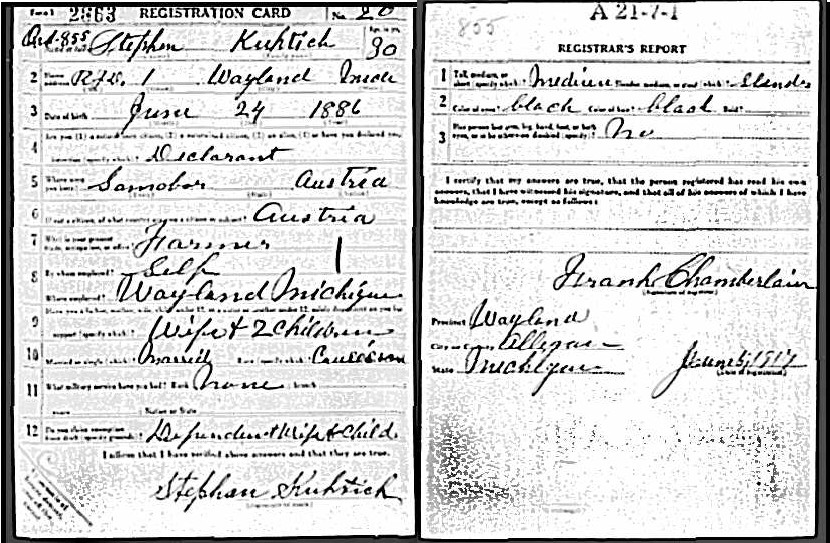 Form 1 2863 REGISTRATION CARD No. 20
Ord-855
Stephen Kuhtich Age, in yrs. 30
2 Home address R.F.D. 1 Wayland Mich
3 Date of birth June 24 1886
4 Are you (1) a natural-born citizen, (2) a naturalized citizen, (3) an alien, (4) or have you declared your
intention (specify which)? Declarant
5 Where were you born? Samobor Austria
6 If not a citizen, of what country are you a citizen or subject? Austria
7 What is your present trade, occupation, or office? Farmer 1
8 By whom employed? Self
Where employed? Wayland Michigan
9 Have you a father, mother, wife, child under 12, or a sister or brother under 12, solely dependent on you for
support (specify which)? Wife & 2 Children
10 Married or single (which)? Married Race (specify which)? Caucasian
11 What military service have you had? Rank None branch
years Nation or State
12 Do you claim exemption from draft (specify grounds)? Dependent Wife & Child
I affirm that I have verified above answers and that they are true.
Stephan Kuhtich
855 A 21-7-1
REGISTRAR'S REPORT
1 Tall, medium, or short (specify which)? Medium Slender, medium, or stout (which)? Slender
2 Color of eyes? black Color of hair? black Bald?
3 Has person lost arm, leg, hand, foot, or both eyes, or is he otherwise disabled (specify)? No
I certify that my answers are true, that the person registered has read his own
answers, that I have witnessed his signature, and that all of his answers of which I have
knowledge are true, except as follows:
Frank Chamberlain
(Signature of registrar)
Precinct Wayland
City or County Allegan
State Michigan June 5, 1917
(Date of registration)